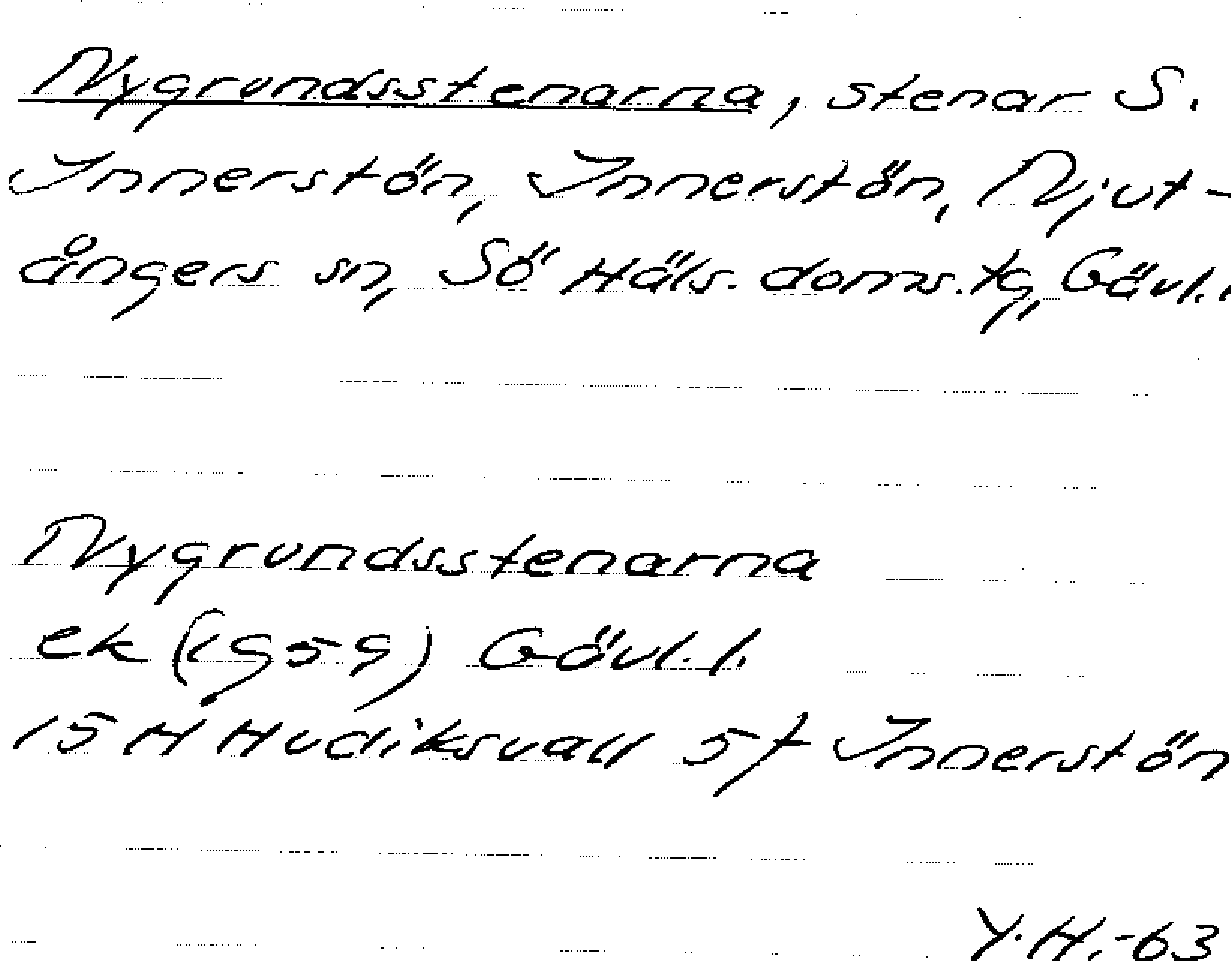 Nygrundsstenarna, stenar S.
Innerstön, Innerstön, Njut-
ångers sn, Sö Häls. doms.tg, Gävl.l
Nygrundsstenarna
ek (1959) Gävl.l.
15 H Hudiksvall 5f Innerstön
Y.H.-63